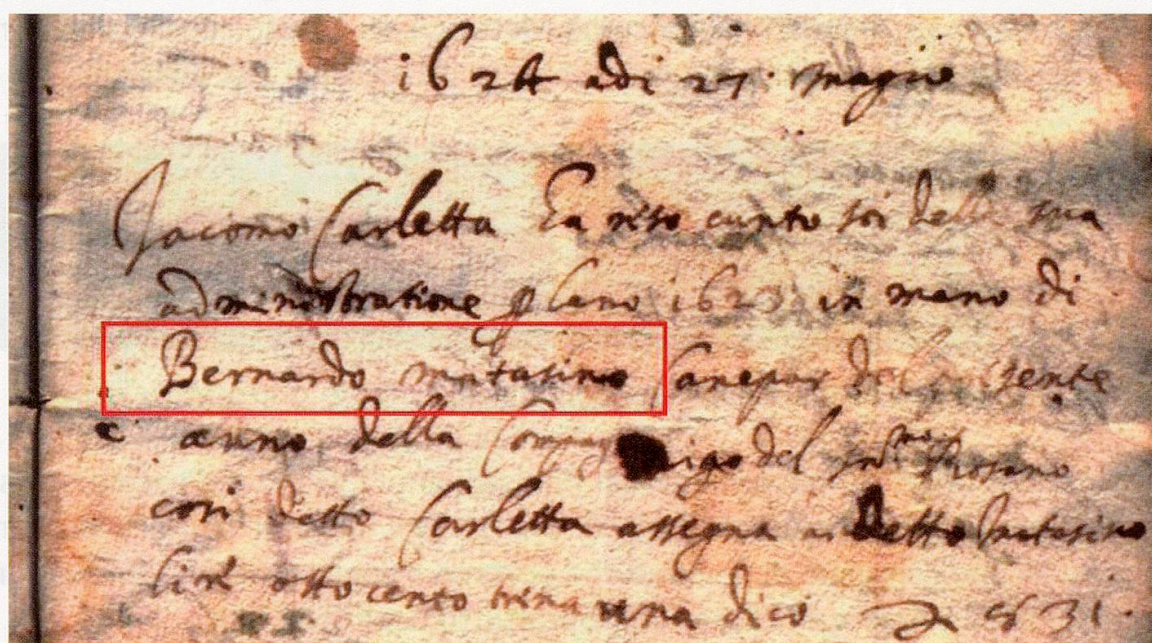 1624 adi 27 magio
Jacomo Carletta Ea reso cunto soi della sua
administratione lano 1623 in mano di
Bernardo matasino Canepar del presente
anno della del Rosario
cosi detto Carletta assegna a detto matasino
lire otto cento trenta una dico 831